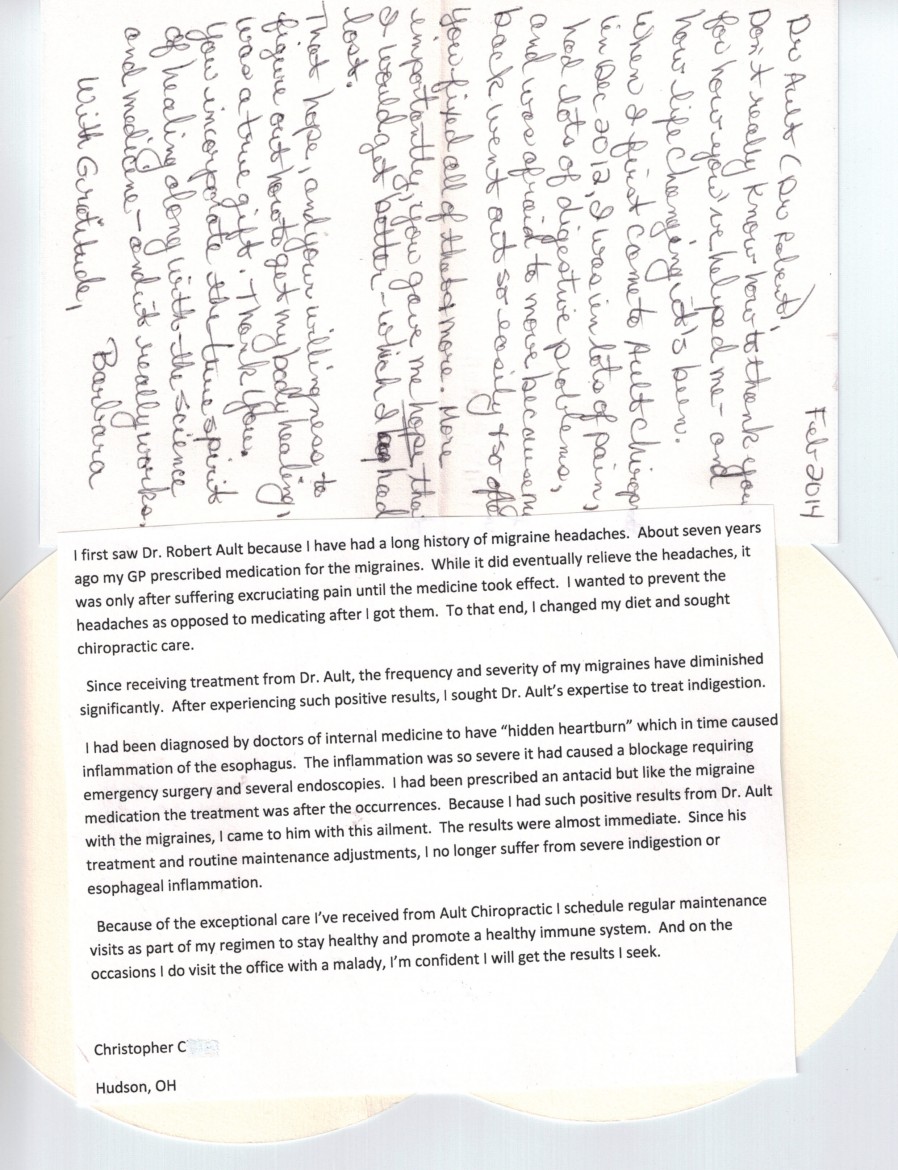 Feb 2014
Dr Ault (Dr Robert),
Don't really know how to thank you
for how you've helped me - and
how life changing it's been.
When I first came to Ault Chirop
in Dec 2012, I was in lots of pain,
had lots of digestive problems,
and was afraid to move because m
back went out so easily & so
You fixed all of that & more. More
importantly, you gave me hope tha
I would get better - which I had
lost.
That hope, and your willingness to
figure out how to get my body healing,
was a true gift. Thank you.
You incorporate the true spirit
of healing along with the science
and medicine - and it really works.
With Gratitude,
Barbara
I first saw Dr. Robert Ault because I have had a long history of migraine headaches. About seven years
ago my GP prescribed medication for the migraines. While it did eventually relieve the headaches, it
was only after suffering excruciating pain until the medicine took effect. I wanted to prevent the
headaches as opposed to medicating after I got them. To that end, I changed my diet and sought
chiropractic care.
Since receiving treatment from Dr. Ault, the frequency and severity of my migraines have diminished
significantly. After experiencing such positive results, I sought Dr. Ault's expertise to treat indigestion.
I had been diagnosed by doctors of internal medicine to have "hidden heartburn" which in time caused
inflammation of the esophagus. The inflammation was so severe it had caused a blockage requiring
emergency surgery and several endoscopies. I had been prescribed an antacid but like the migraine
medication the treatment was after the occurrences. Because I had such positive results from Dr. Ault
with the migraines, I came to him with this ailment. The results were almost immediate. Since his
treatment and routine maintenance adjustments, I no longer suffer from severe indigestion or
esophageal inflammation.
Because of the exceptional care I've received from Ault Chiropractic I schedule regular maintenance
visits as part of my regimen to stay healthy and promote a healthy immune system. And on the
occasions I do visit the office with a malady, I'm confident I will get the results I seek.
Christopher C
Hudson, OH